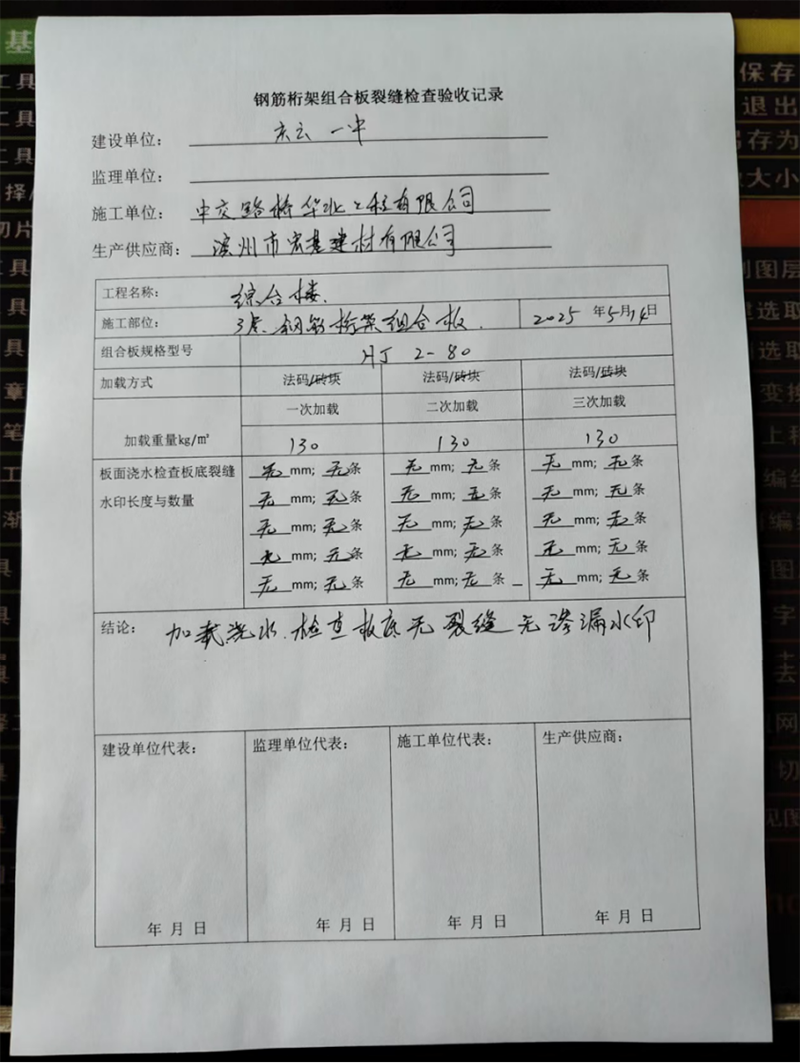 钢筋桁架组合板裂缝检查验收记录
建设单位： 庆云一中
监理单位：
施工单位： 中交路桥华北工程有限公司
生产供应商： 滨州市宏基建材有限公司
工程名称： 综合楼.
施工部位： 3层.钢筋桁架组合板. 2025 年5月14日
组合板规格型号 HJ 2-80
加载方式 法码/砖块 法码/砖块 法码/砖块
一次加载 二次加载 三次加载
加载重量kg/㎡ 130 130 130
板面浇水检查板底裂缝 无mm; 无条 无mm; 无条 无mm; 无条
水印长度与数量 无mm; 无条 无mm; 无条 无mm; 无条
无mm; 无条 无mm; 无条 无mm; 无条
无mm; 无条 无mm; 无条 无mm; 无条
无mm; 无条 无mm; 无条 无mm; 无条
结论： 加载浇水.检查板底无裂缝无渗漏水印
建设单位代表： 监理单位代表： 施工单位代表： 生产供应商：
年 月 日 年 月 日 年 月 日 年 月 日
基
工具
工具
工具
选择/
切片
工具
具
具
章
笔
工
渐
具
具
具
保存
退出
另存为
大小
图层
选取
选取
变换
上移
编组
图
字
去
网
切
见图